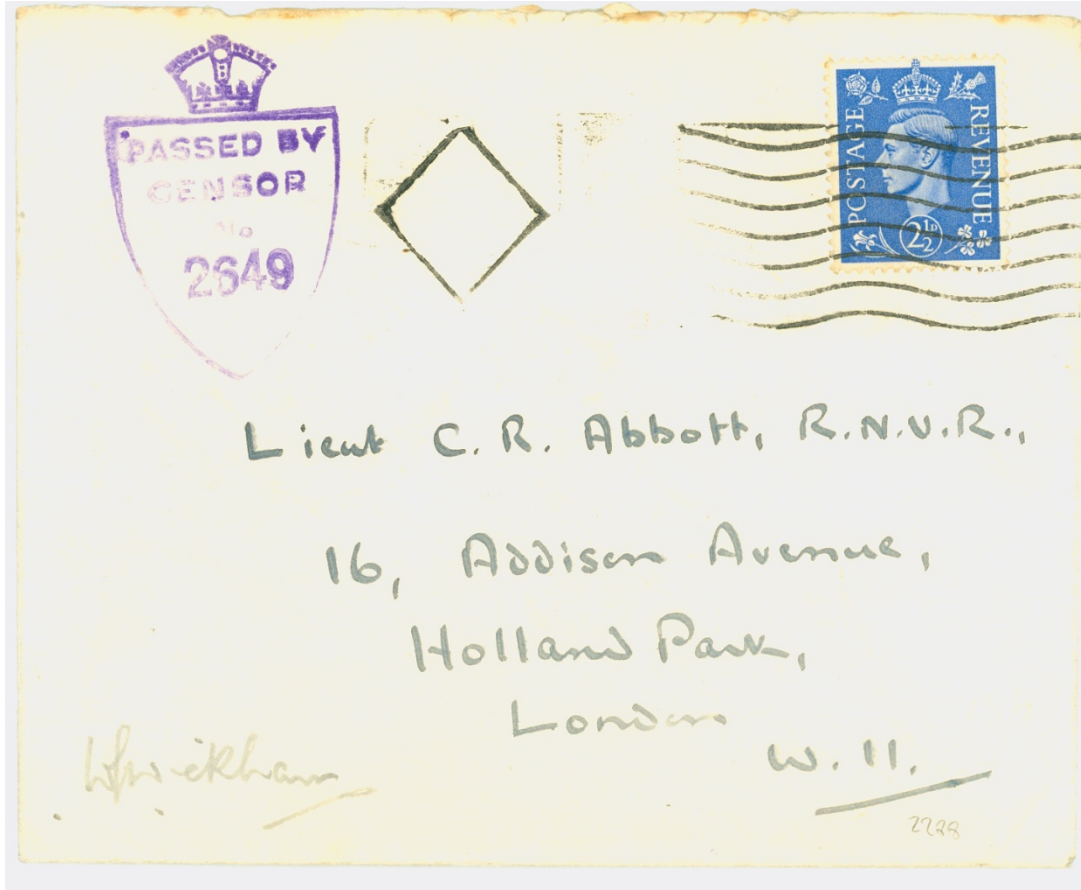 PASSED BY
CENSOR
No
2649
POSTAGE
REVENUE
2½D
Lieut C. R. Abbott, R.N.V.R.,
16, Addison Avenue,
Holland Park,
London
W. 11.
2228